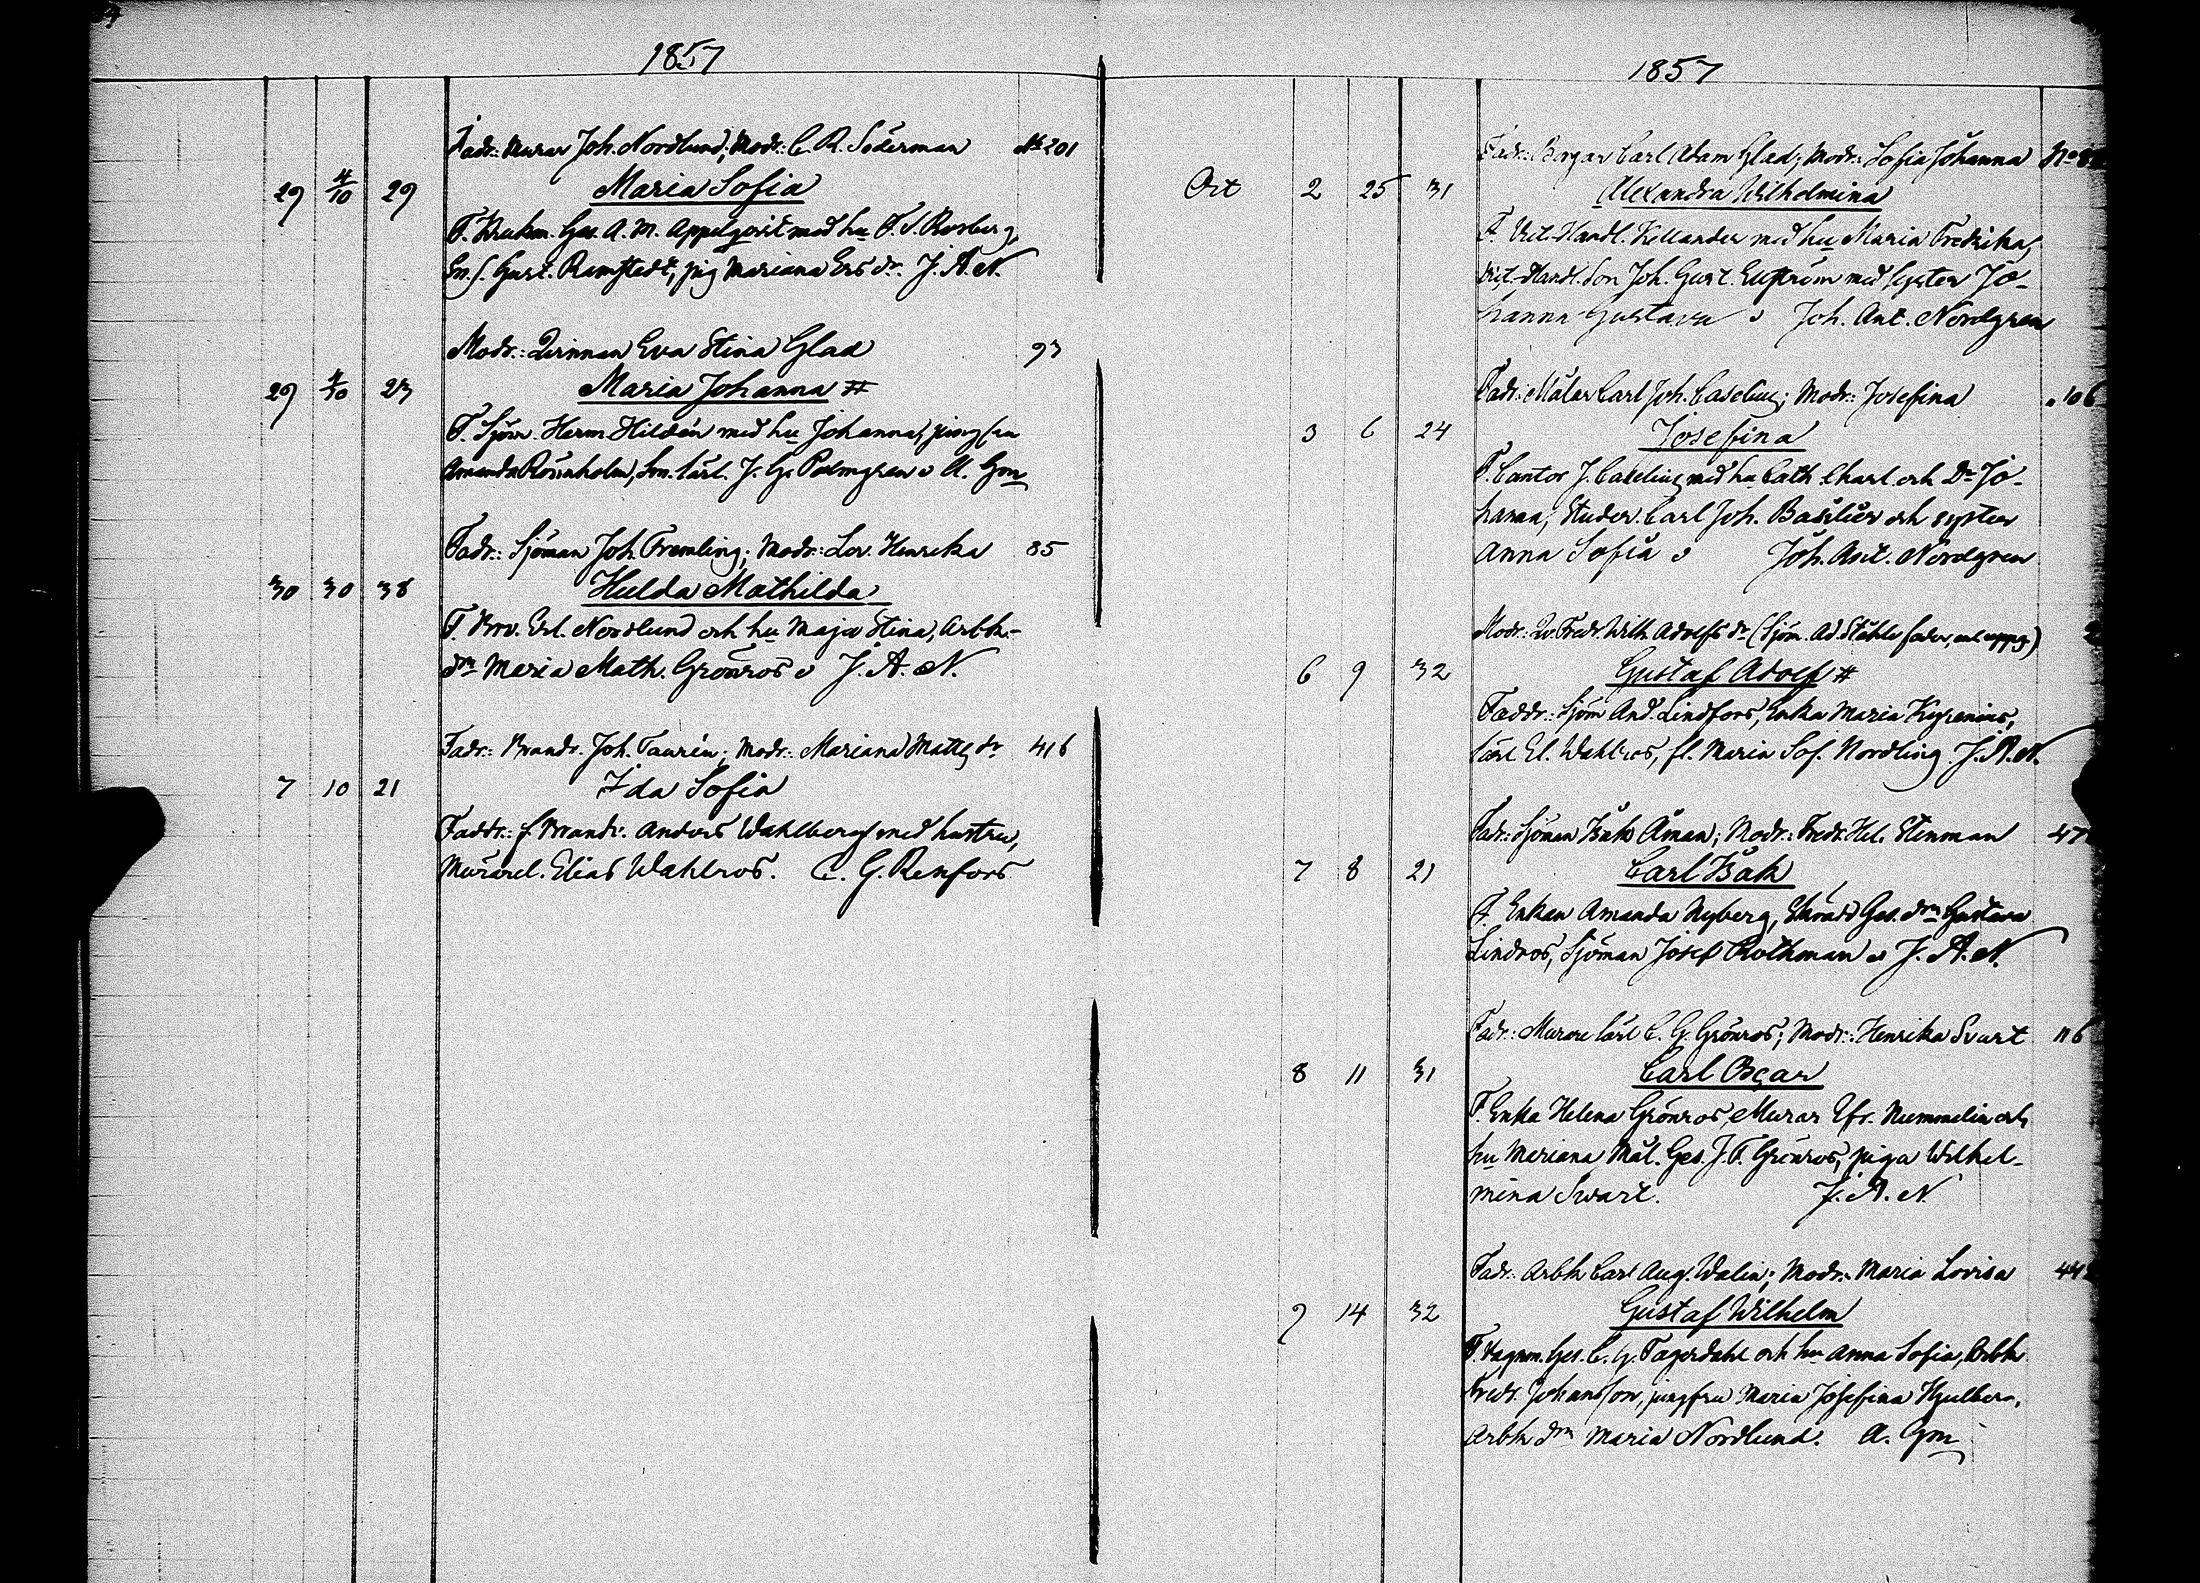 1857
Fadr: Murar Joh. Nordlund; Modr: C. R. Söderman No 201
29 4/10 29 Maria Sofia
F. Krukm. Ges. A. M. Appelqvist med hu F. S. Rosberg,
Gust. Ramstedt, pig Mariana Ersdr. J. A. N.
Modr: Qvinnan Eva Stina Glad 93
29 4/10 23 Maria Johanna #
F. Sjöm. Herm. Hildén med hu Johanna, jungfru
Amanda Rosenholm, Sm. lärl. J. G. Palmgren A. Gm
Fadr: Sjöman Joh. Fremling; Modr: Lov. Henrika 85
30 30 38 Hulda Mathilda
F. Erl. Nordlund och hu Maja Stina, Arbk.
drn Maria Math. Grönros J. A. N.
Fadr: Brandv. Joh. Taurén; Modr: Mariana Mattsdr 416
7 10 21 Ida Sofia
Faddr: f. Brandv. Anders Wahlberg med hustru,
Murarel. Elias Wahlros. C. G. Renfors
1857
Fadr: Borgar Carl Adam Glad; Modr: Sofia Johanna No
Oct 2 25 31 Alexandra Wilhelmina
F. Vict. Handl. Kellander med hu Maria Fredrika,
Vict. Handl. Son Joh. Gust. Engström med syster Jo-
hanna Gustava Joh. Ant. Nordgren
Fadr: Målar Carl Joh. Caselius; Modr: Josefina 106
3 6 24 Josefina
F. Cantor J. Caselius med hu Cath. Charl. och Dr Jo-
hanna; Studer. Carl Joh. Basilier och syster
Anna Sofia Joh. Ant. Nordgren
Modr: Qv. Fredr. Wilh. Adolfsdr (Sjöm. Ad. Ståhle fader, enl. uppg.)
6 9 32 Gustaf Adolf #
Faddr: Sjöm And. Lindfors, Enka Maria
lärl El. Wahlros, fl. Maria Sof. Nordling J. A. N.
Fadr: Sjöman Isak Åman; Modr: Fredr. Hel. Stenman 47
7 8 21 Carl Isak
F. Enkan Amanda Nyberg, Skradd Ges. drn Gustava
Lindros, Sjöman Josef Rothman J. A. N.
Fadr: Murare lärl C. G. Grönros; Modr: Henrika Svart 116
8 11 31 Carl Oscar
F. Enka Helena Grönros, Murar Efr. Nummelin och
hu Mariana Mål. Ges. J. F. Grönros, piga Wilhel-
mina Swart. J. A. N
Fadr: Arbk Carl Aug. Walin; Modr: Maria Lovisa 44
9 14 32 Gustaf Wilhelm
F. Vagnm. Ges. C. G. Fagerdahl och hu Anna Sofia, Arbk
Fredr. Johansson, jungfru Maria Josefina Hjulberg,
Arbk drn Maria Nordlund. A. Gm